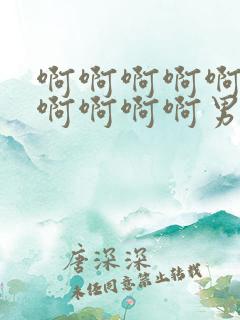 啊啊啊啊啊
啊啊啊啊男
唐深深
未经同意禁止转载